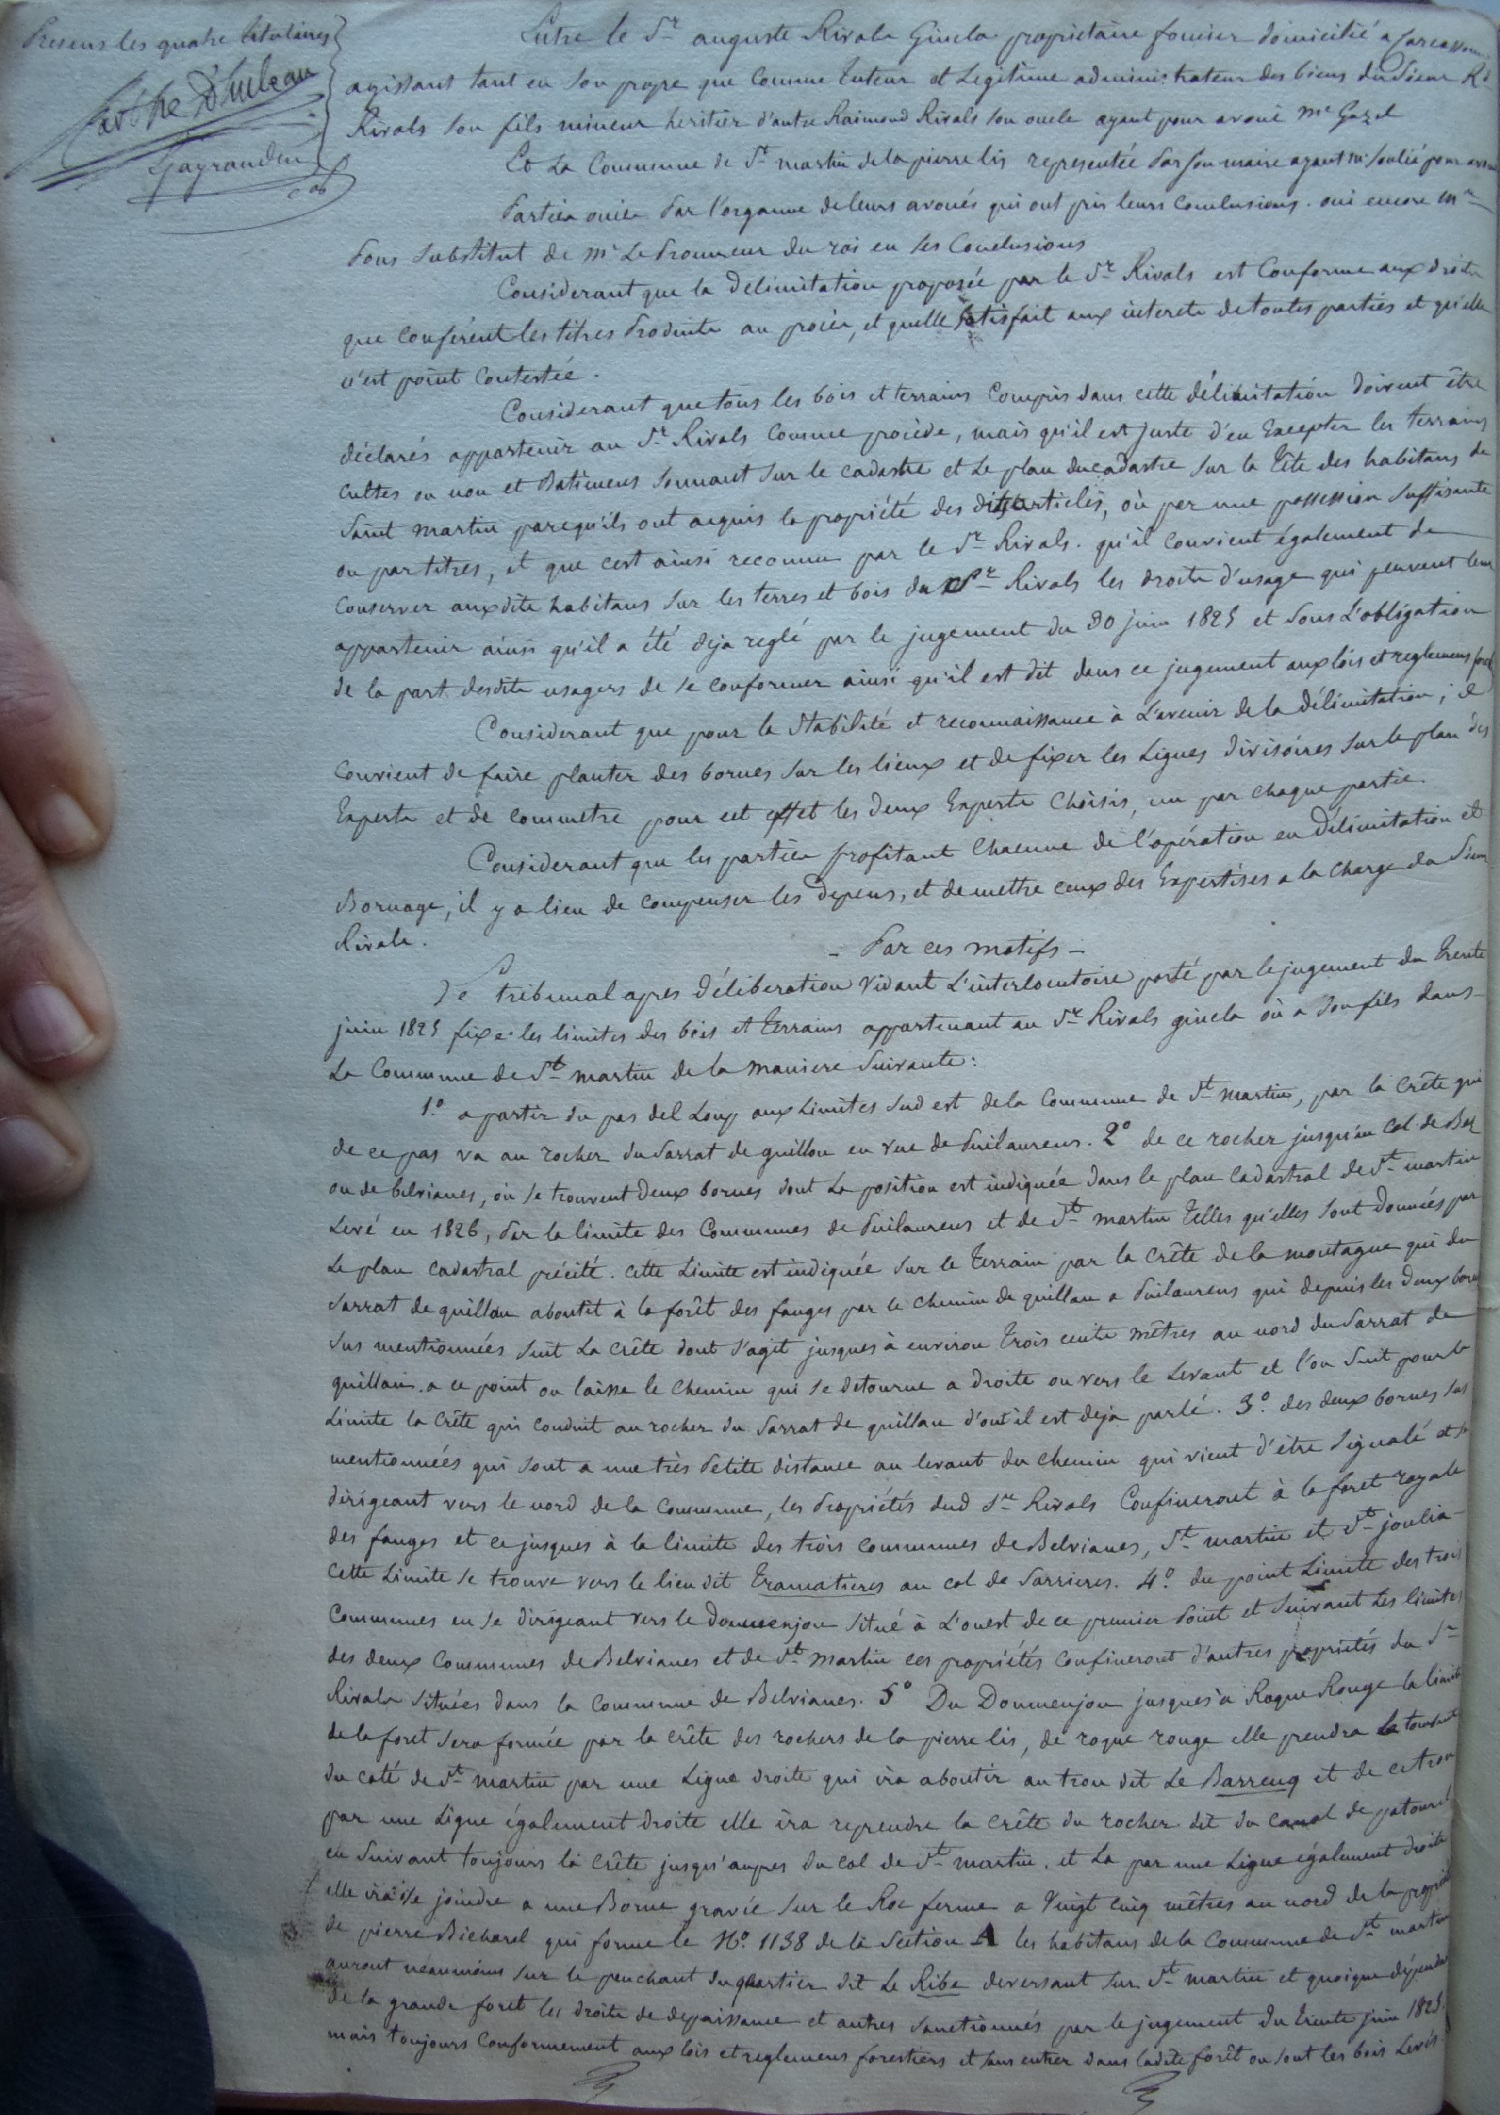 Presens les quatre titulaires
Entre le Sr auguste Rivals Gincla proprietaire foncier domicilié a Carcassonne
agissant tant en son propre que comme tuteur et Legitime administrateur des biens du Sieur Rd
Rivals son fils mineur heritier d'autre Raimond Rivals son oncle ayant pour avoué me Gazel
Et La Commune de St martin de la pierre lis representée Par son maire ayant me Soulié pour avoué
Parties ouies Par l'organne de leurs avoués qui ont pris leurs Conclusions. oui encore mr
Pons Substitut de mr Le Procureur du roi en ses Conclusions
Considerant que la Délimitation proposée par le Sr Rivals est Conforme aux droits
que conférent les titres Produits au procès, et quelle satisfait aux interets de toutes parties et qu'elle
n'est point Contestée.
Considerant que tous les bois et terrains Compris dans cette délimitation doivent être
déclarés appartenir au Sr Rivals Comme procède, mais qu'il est juste d'en Excepter les terrains
cultes ou non et Batimens Sonnant Sur le cadastre et Le plan du cadastre Sur la Tête des habitans de
Saint martin parcequ'ils ont acquis la propriété des dits articles, où par une possession Suffisante
ou par titres, et que c'est ainsi reconnu par le Sr Rivals. qu'il convient également de
Conserver auxdits habitans Sur les terres et bois du Sr Rivals les droits d'usage qui peuvent leur
appartenir ainsi qu'il a été deja reglé par le jugement du 30 juin 1825 et Sous L'obligation
de la part desdits usagers de se conformer ainsi qu'il est dit dans ce jugement aux lois et reglemens
Considerant que pour la Stabilité et reconnaissance à L'avenir de la délimitation, il
Convient de faire planter des bornes Sur les lieux et de fixer les Lignes divisoires Sur le plan des
Experts et de commettre pour cet effet les deux Experts Choisis, un par chaque partie.
Considerant que les parties profitant Chacune de l'opération en Délimitation et
Bornage, il y a lieu de compenser les Depens, et de mettre ceux des Expertises a la Charge du Sieur
Rivals.
- Par ces motifs -
Le tribunal apres délibération vidant L'interlocutoire porté par le jugement du trente
juin 1825 fixe les limites des bois et terrains appartenant au Sr Rivals gincla où a Son fils dans
La Commune de St martin de la maniere Suivante:
1º a partir du pas del Loup aux Limites Sud est de la Commune de St martin, par la crête qui
de ce pas va au rocher du Sarrat de guillou en vue de Puilaurens. 2º de ce rocher jusqu'au col de Bel
ou de belvianes, où se trouvent Deux bornes dont La position est indiquée Dans le plan Cadastral de St martin
Levé en 1826, Par la limite des Communes de Puilaurens et de St martin telles qu'elles Sont Données par
Le plan cadastral précité. cette Limite est indiquée Sur le terrain par la crête de la montagne qui du
Sarrat de quillan aboutit à la forêt des fanges par le chemin de quillan a Puilaurens qui depuis les deux bornes
Sus mentionnées Suit La crête dont S'agit jusques à environ trois cents mêtres au nord du Sarrat de
quillan. a ce point on laisse le Chemin qui se detourne a droite ou vers le Levant et l'on Suit pour la
Limite la crête qui conduit au rocher du Sarrat de quillan d'out il est deja parlé. 3º. des deux bornes Sus
mentionneés qui Sont a une très Petite distance au levant du Chemin qui vient d'être Signalé et se
dirigeant vers le nord de la Commune, les Propriétés dud Sr Rivals Confineront à la foret royale
des fanges et ce jusques à la limite des trois Communes de Belvianes, St martin et St joulia-
Cette Limite se trouve vers le lieu dit Eramatieres au col de Sarrieres. 4º. du point Limite des trois
Communes en se dirigeant vers le Doumenjou Situé à L'ouest de ce premier Point et Suivant Les limites
des deux Communes de Belvianes et de St martin ces propriétés Confineront d'autres propriétés du Sr
Rivals Situées dans la Commune de Belvianes. 5º Du Doumenjou jusques à Roque Rouge la limite
de la foret Sera formée par la crête des rochers de la pierre lis, de roque rouge elle prendra Le tournant
du coté de St martin par une Ligne droite qui ira aboutir au trou dit Le Barrencq et de ce trou
par une Ligne également droite elle ira reprendre la crête du rocher dit du Canal de
en Suivant toujours la crête jusqu'aupres du Col de St martin. et La par une Ligne également droite
elle ira se joindre a une Borne gravée Sur le Roc ferme a Vingt cinq mêtres au nord de la propriété
de pierre Bicharel qui forme le Nº. 1138 de la Section A les habitans de la Commune de St martin
auront néanmoins Sur le penchant du quartier dit Le Ribe deversant Sur St martin et quoique dépendant
de la grande foret les droits de depaissance et autres Sanctionnés par le jugement du trente juin 1825.
mais toujours Conformement aux lois et reglemens forestiers et sans entrer dans ladite forêt ou sont les bois Levés